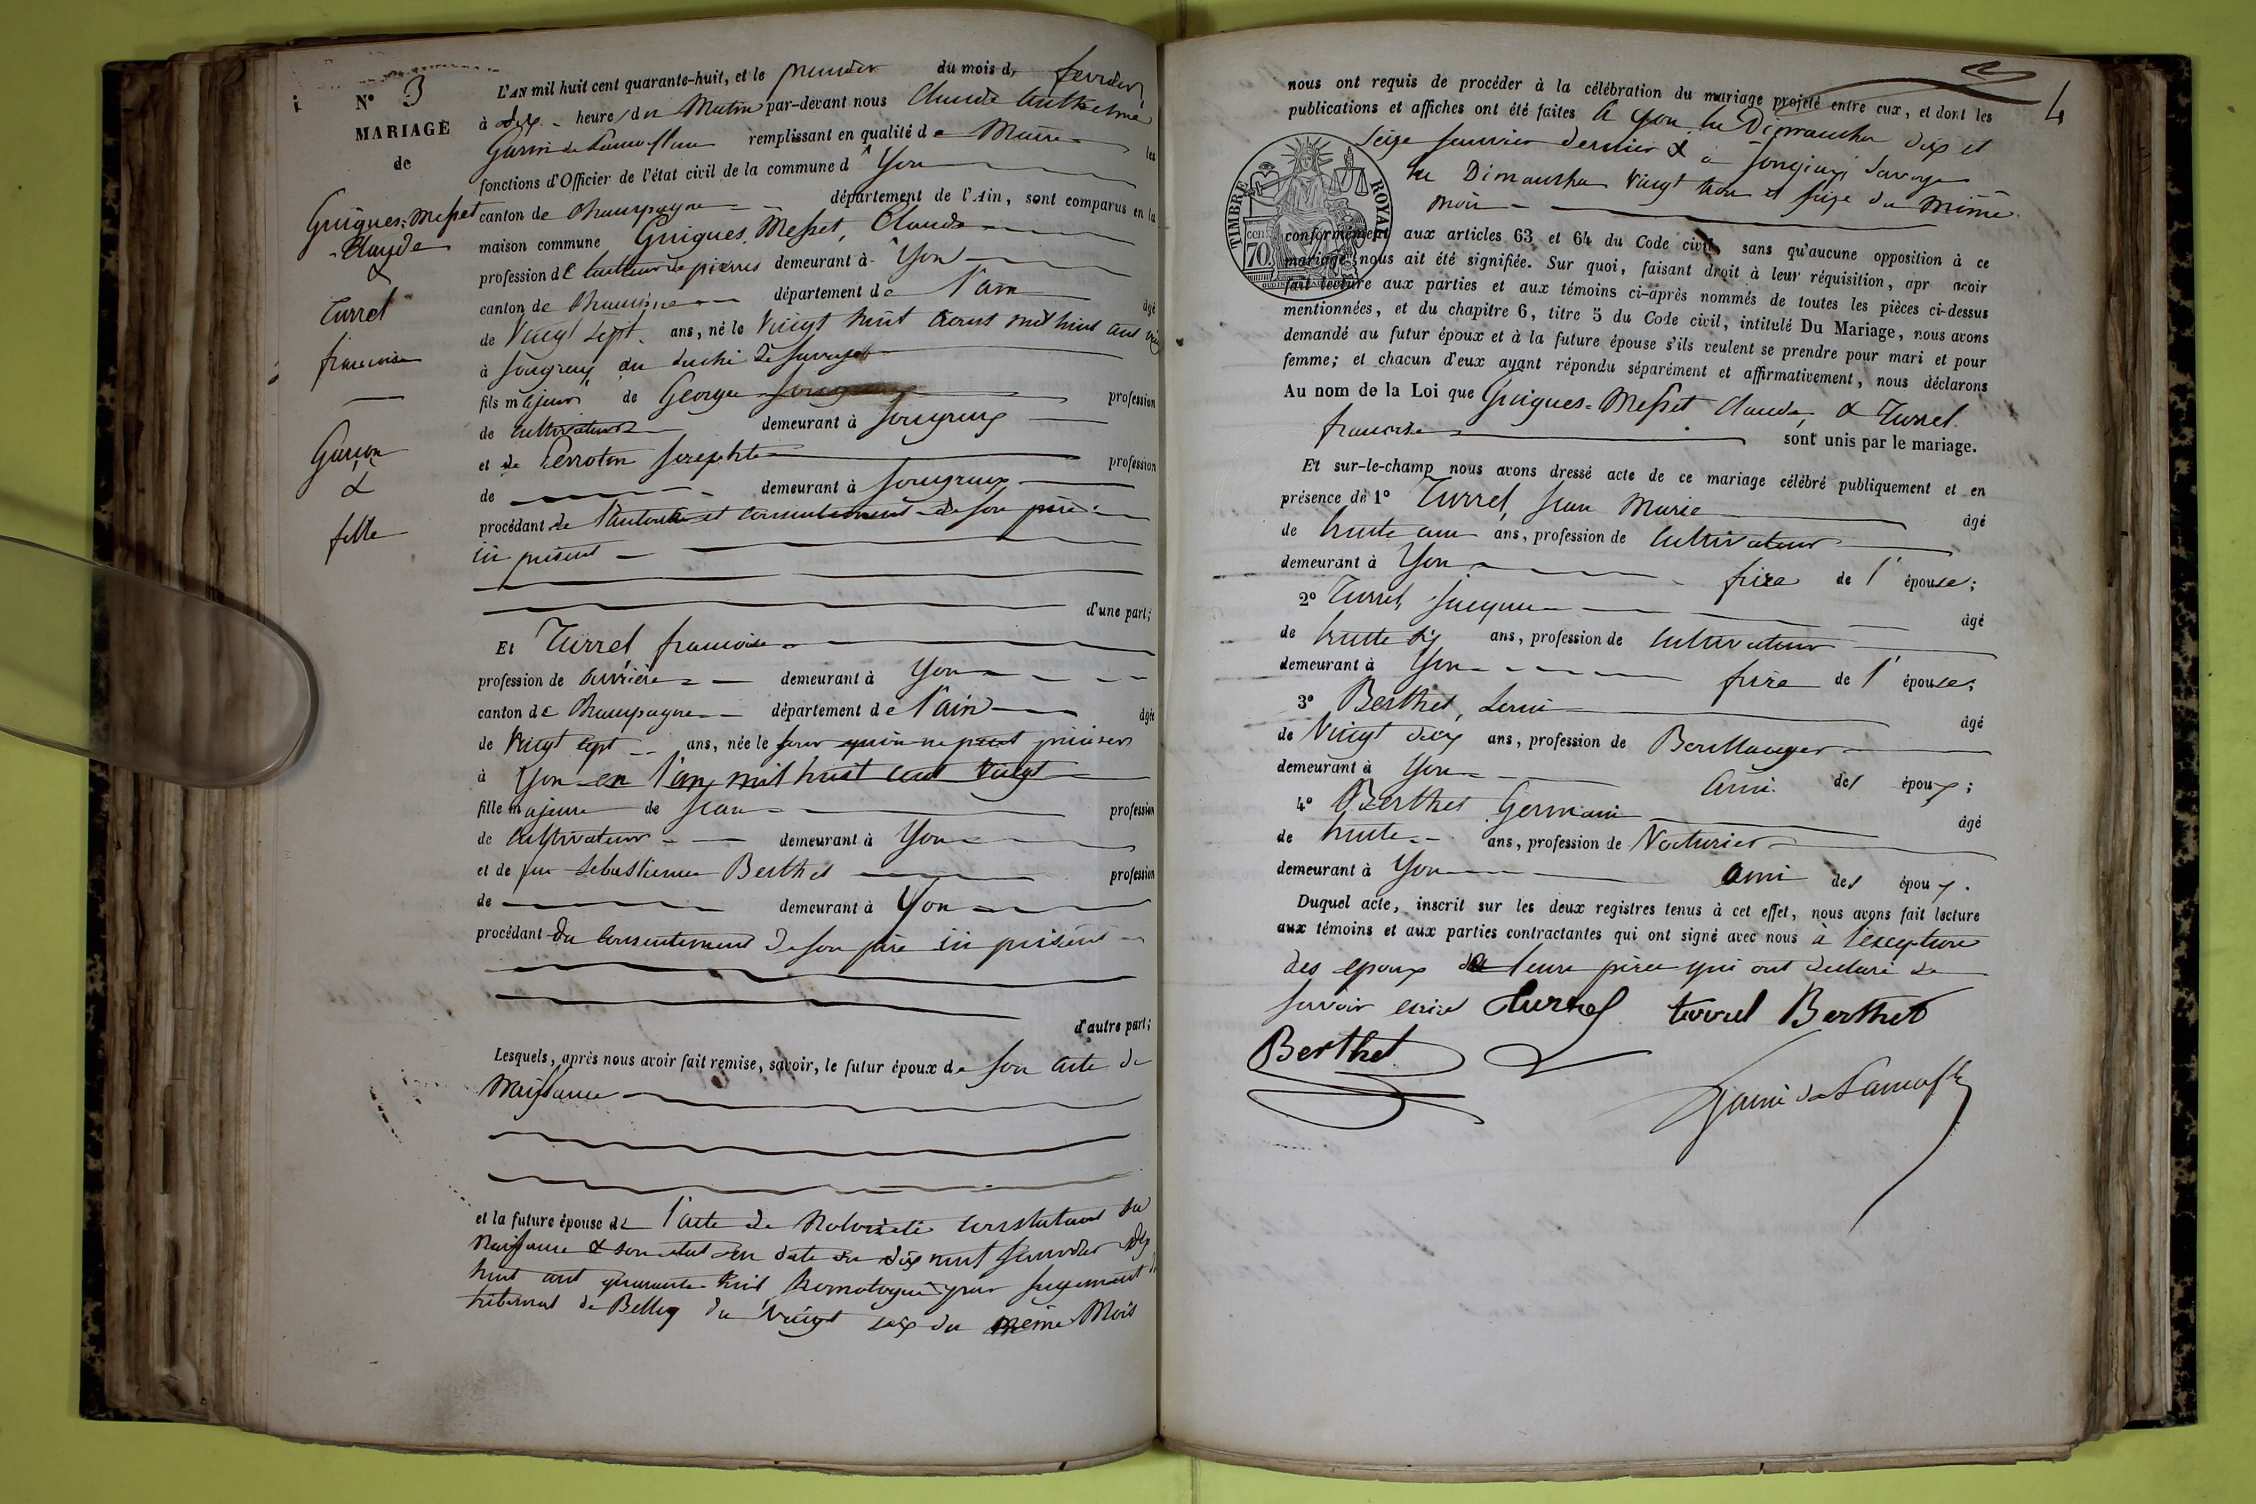 N° 3
MARIAGE
de
Guigues-Messet
Claude
&
Turrel
francoise
Garcon
&
fille
L'AN mil huit cent quarante-huit, et le premier du mois de fevrier
à dix heure du Matin par-devant nous Claude Anthelme
Garin de Lamorflan remplissant en qualité de Maire les
fonctions d'Officier de l'état civil de la commune d'Yon
canton de Champagne département de l'Ain, sont comparus en la
maison commune Guigues-Messet, Claude
profession de tailleur de pierres demeurant à Yon
canton de Champagne département de l'ain âgé
de Vingt sept ans, né le Vingt huit Aout mil huit cent vingt
à Songieu au duché de Savoye
fils majeur de George profession
de cultivateur demeurant à Songieux
et de Perrotin Josephte profession
de demeurant à Songieux
procédant de l'autorité et consentement de son père
ici présent
d'une part;
Et Turrel francoise
profession de ouvrière demeurant à Yon
canton de Champagne département de l'ain âgée
de Vingt sept ans, née le jour qu'on ne peut préciser
à Yon en l'an mil huit cent vingt
fille majeure de Jean profession
de cultivateur demeurant à Yon
et de feu Sebastienne Berthet profession
de demeurant à Yon
procédant du consentement de son père ici présent
d'autre part;
Lesquels, après nous avoir fait remise, savoir, le futur époux de son acte de
Naissance
et la future épouse de l'acte de Notoriété constatant sa
Naissance & son etat en date du dix huit Janvier dix
huit cent quarante huit homologué par jugement du
tribunal de Belley du Vingt six du même Mois
4
nous ont requis de procéder à la célébration du mariage projeté entre eux, et dont les
publications et affiches ont été faites à Yon les Dimanches dix et
Seize Janvier dernier & à Songieux Savoye
les Dimanches Vingt trois et Seize du même
mois
TIMBRE ROYAL
cen. 70
conformément aux articles 63 et 64 du Code civil, sans qu'aucune opposition à ce
mariage nous ait été signifiée. Sur quoi, faisant droit à leur réquisition, apr avoir
fait lecture aux parties et aux témoins ci-après nommés de toutes les pièces ci-dessus
mentionnées, et du chapitre 6, titre 5 du Code civil, intitulé Du Mariage, nous avons
demandé au futur époux et à la future épouse s'ils veulent se prendre pour mari et pour
femme; et chacun d'eux ayant répondu séparément et affirmativement, nous déclarons
Au nom de la Loi que Guigues-Messet Claude, & Turrel
francoise sont unis par le mariage.
Et sur-le-champ nous avons dressé acte de ce mariage célébré publiquement et en
présence de 1° Turrel, Jean Marie âgé
de trente ans, profession de Cultivateur
demeurant à Yon frère de l'épouse;
2° Turrel, Jacques âgé
de trente six ans, profession de Cultivateur
demeurant à Yon frère de l'épouse;
3° Berthet, âgé
de Vingt dix ans, profession de Boullanger
demeurant à Yon ami des époux;
4° Berthet Germain âgé
de trente ans, profession de Voiturier
demeurant à Yon ami des époux.
Duquel acte, inscrit sur les deux registres tenus à cet effet, nous avons fait lecture
aux témoins et aux parties contractantes qui ont signé avec nous à l'exception
des epoux de leurs pères qui ont déclaré ne
savoir ecrire Turrel turrel Berthet
Berthet
Garin de Lamorfla